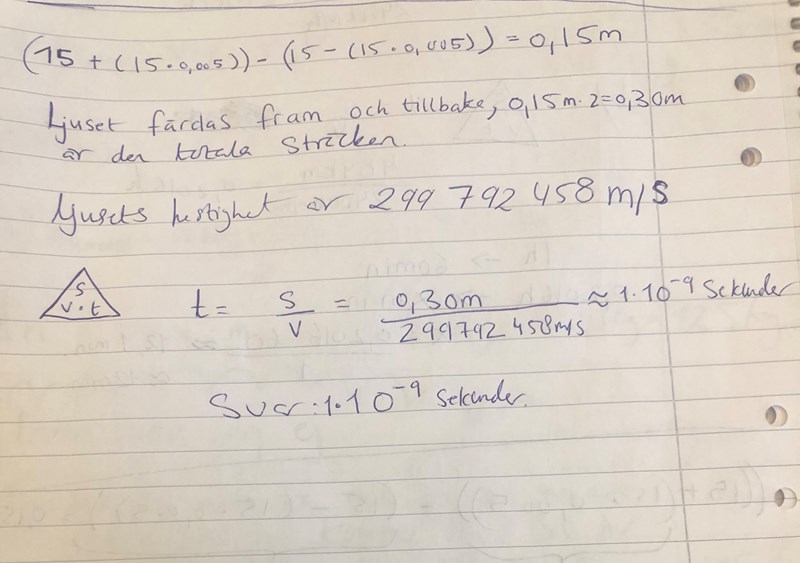 (15 + (15 · 0,005)) - (15 - (15 · 0,005)) = 0,15m
Ljuset färdas fram och tillbake, 0,15m · 2 = 0,30m
är den totala sträcken.
Ljusets hastighet är 299 792 458 m/s
s
v · t
t = s/v = 0,30m / 299792 458m/s ≈ 1 · 10⁻⁹ Sekunder
Svar: 1 · 10⁻⁹ Sekunder.